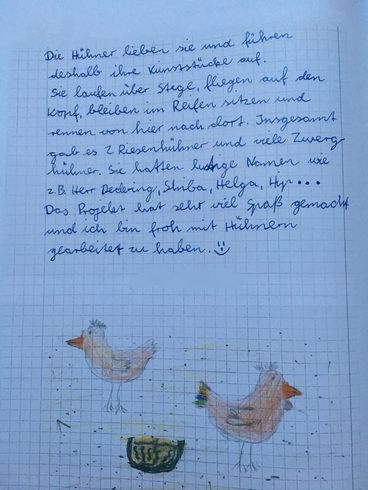 Die Hühner lieben sie und führen
deshalb ihre Kunststücke auf.
Sie laufen über Stege, fliegen auf den
Kopf, bleiben im Reifen sitzen und
rennen von hier nach dort. Insgesamt
gab es 2 Riesenhühner und viele Zwerg
hühner. Sie hatten lustige Namen wie
z.B. Herr Dedering, Shiba, Helga, Hyr...
Das Projekt hat sehr viel Spaß gemacht
und ich bin froh mit Hühnern
gearbeitet zu haben. :)